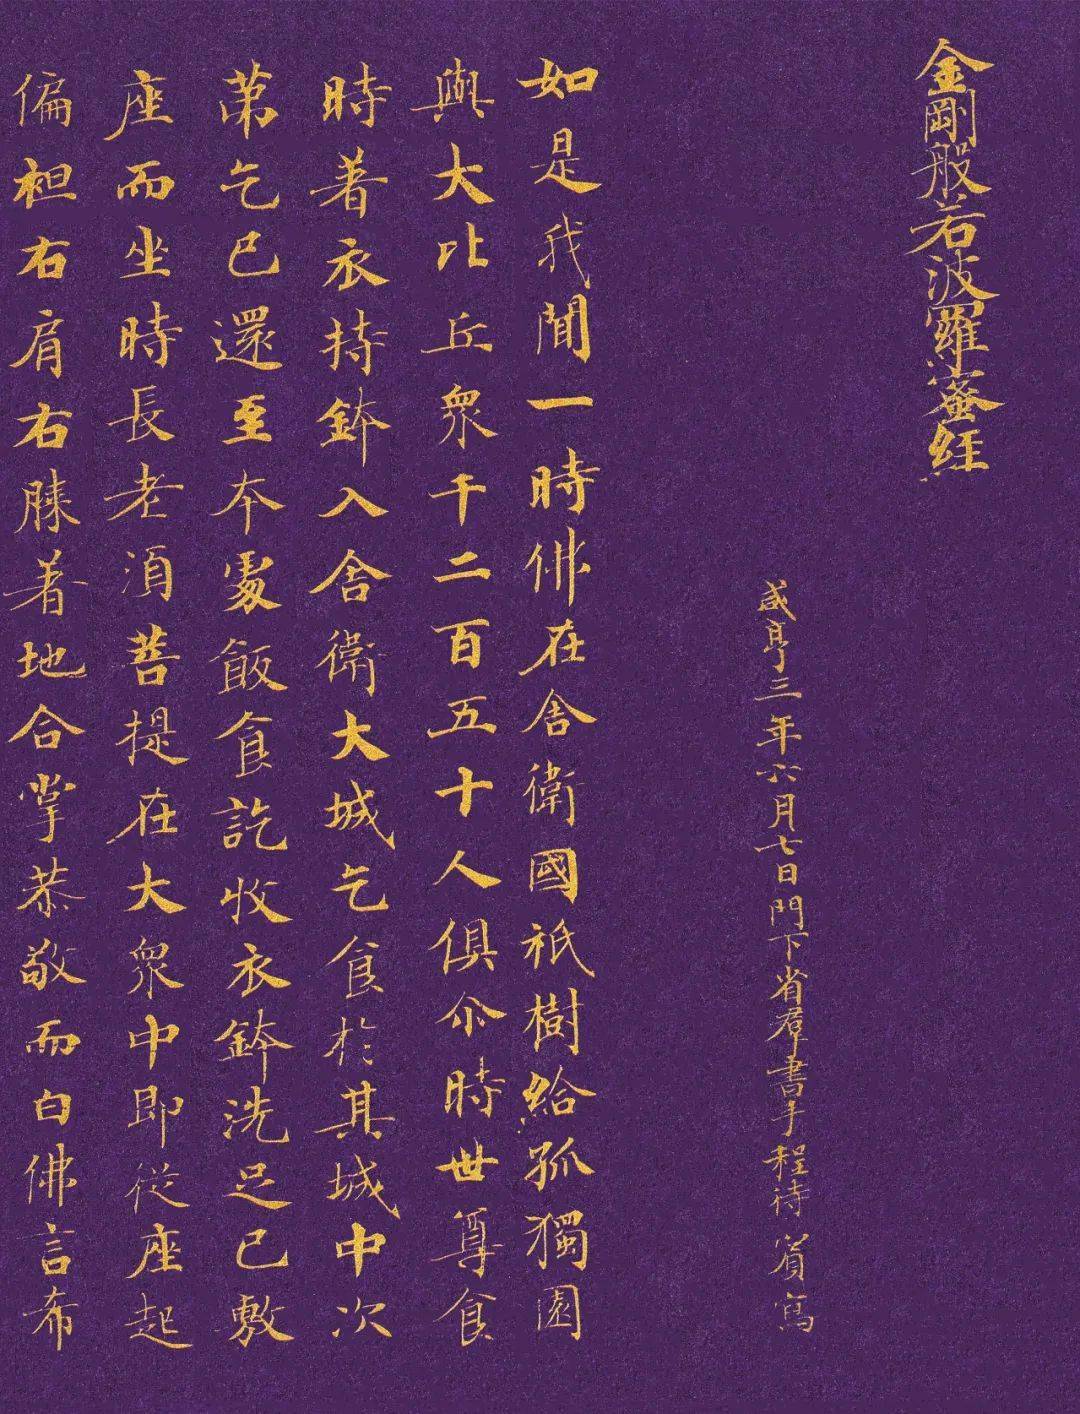 金剛般若波羅蜜經
咸亨三年六月七日門下省群書手程待賓寫
如是我聞一時佛在舍衛國祇樹給孤獨園
與大比丘衆千二百五十人俱尒時世尊食
時著衣持鉢入舍衛大城乞食於其城中次
苐乞已還至本處飯食訖收衣鉢洗足已敷
座而坐時長老湏菩提在大衆中即從座起
偏袒右肩右膝著地合掌恭敬而白佛言希